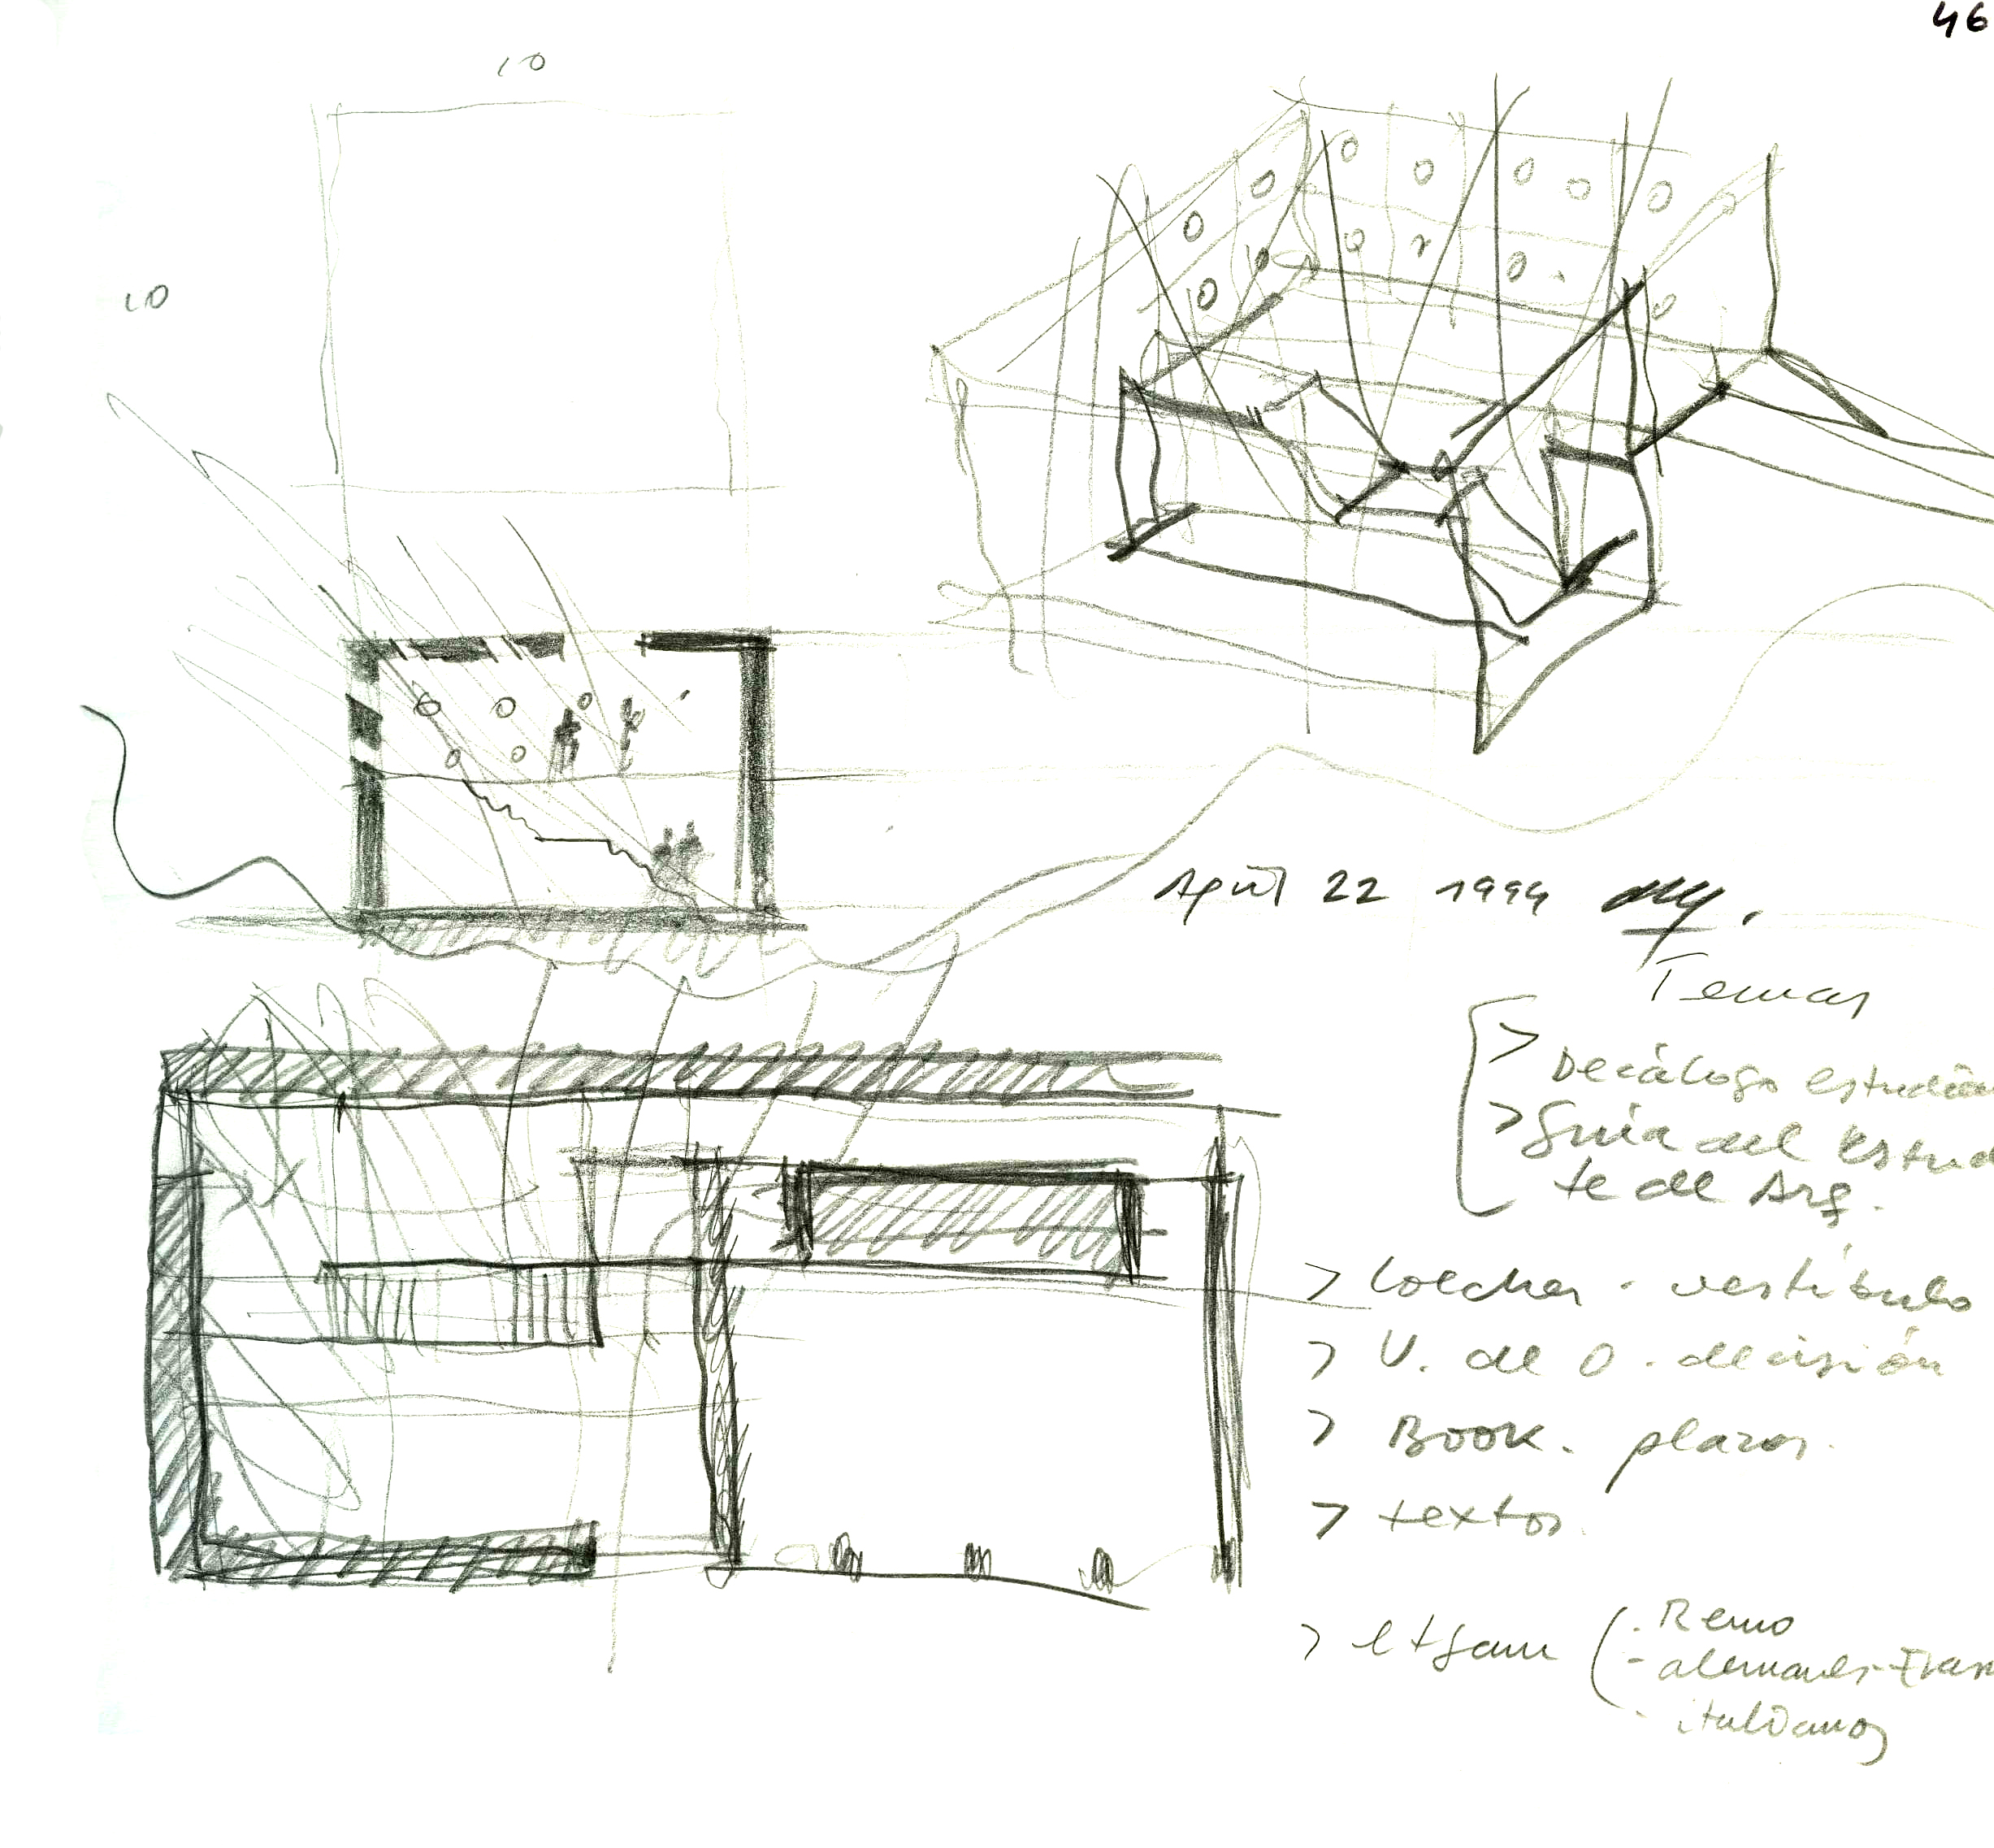 46
10
10
April 22 1994
Temas
> Decálogo estudian
> Guía del Estud
te de Arq.
> vestíbulo
> U. de O. decisión
> Book. plazos.
> textos.
>
. Remo
- alemanes-
. italianos